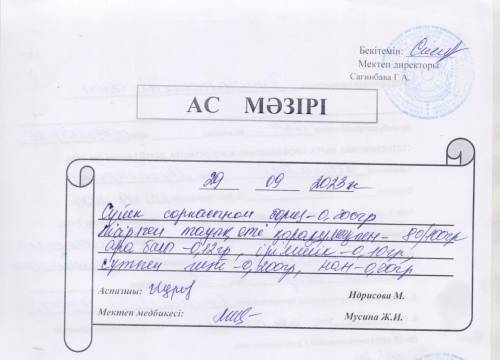 Бекітемін:
Мектеп директоры
Сагинбаева Г А.
АС МӘЗІРІ
29 09 2023ж
Сүйек сорпасынан борщ-0,200гр
тауық еті қарақұмықпен- 80/100гр
ара балы-0,12гр, ірімшік-0,10гр,
Сүтпен шәй-0,200гр, нан-0,20гр,
Аспазшы: Идрисова М.
Мектеп медбикесі: Мусина Ж.И.